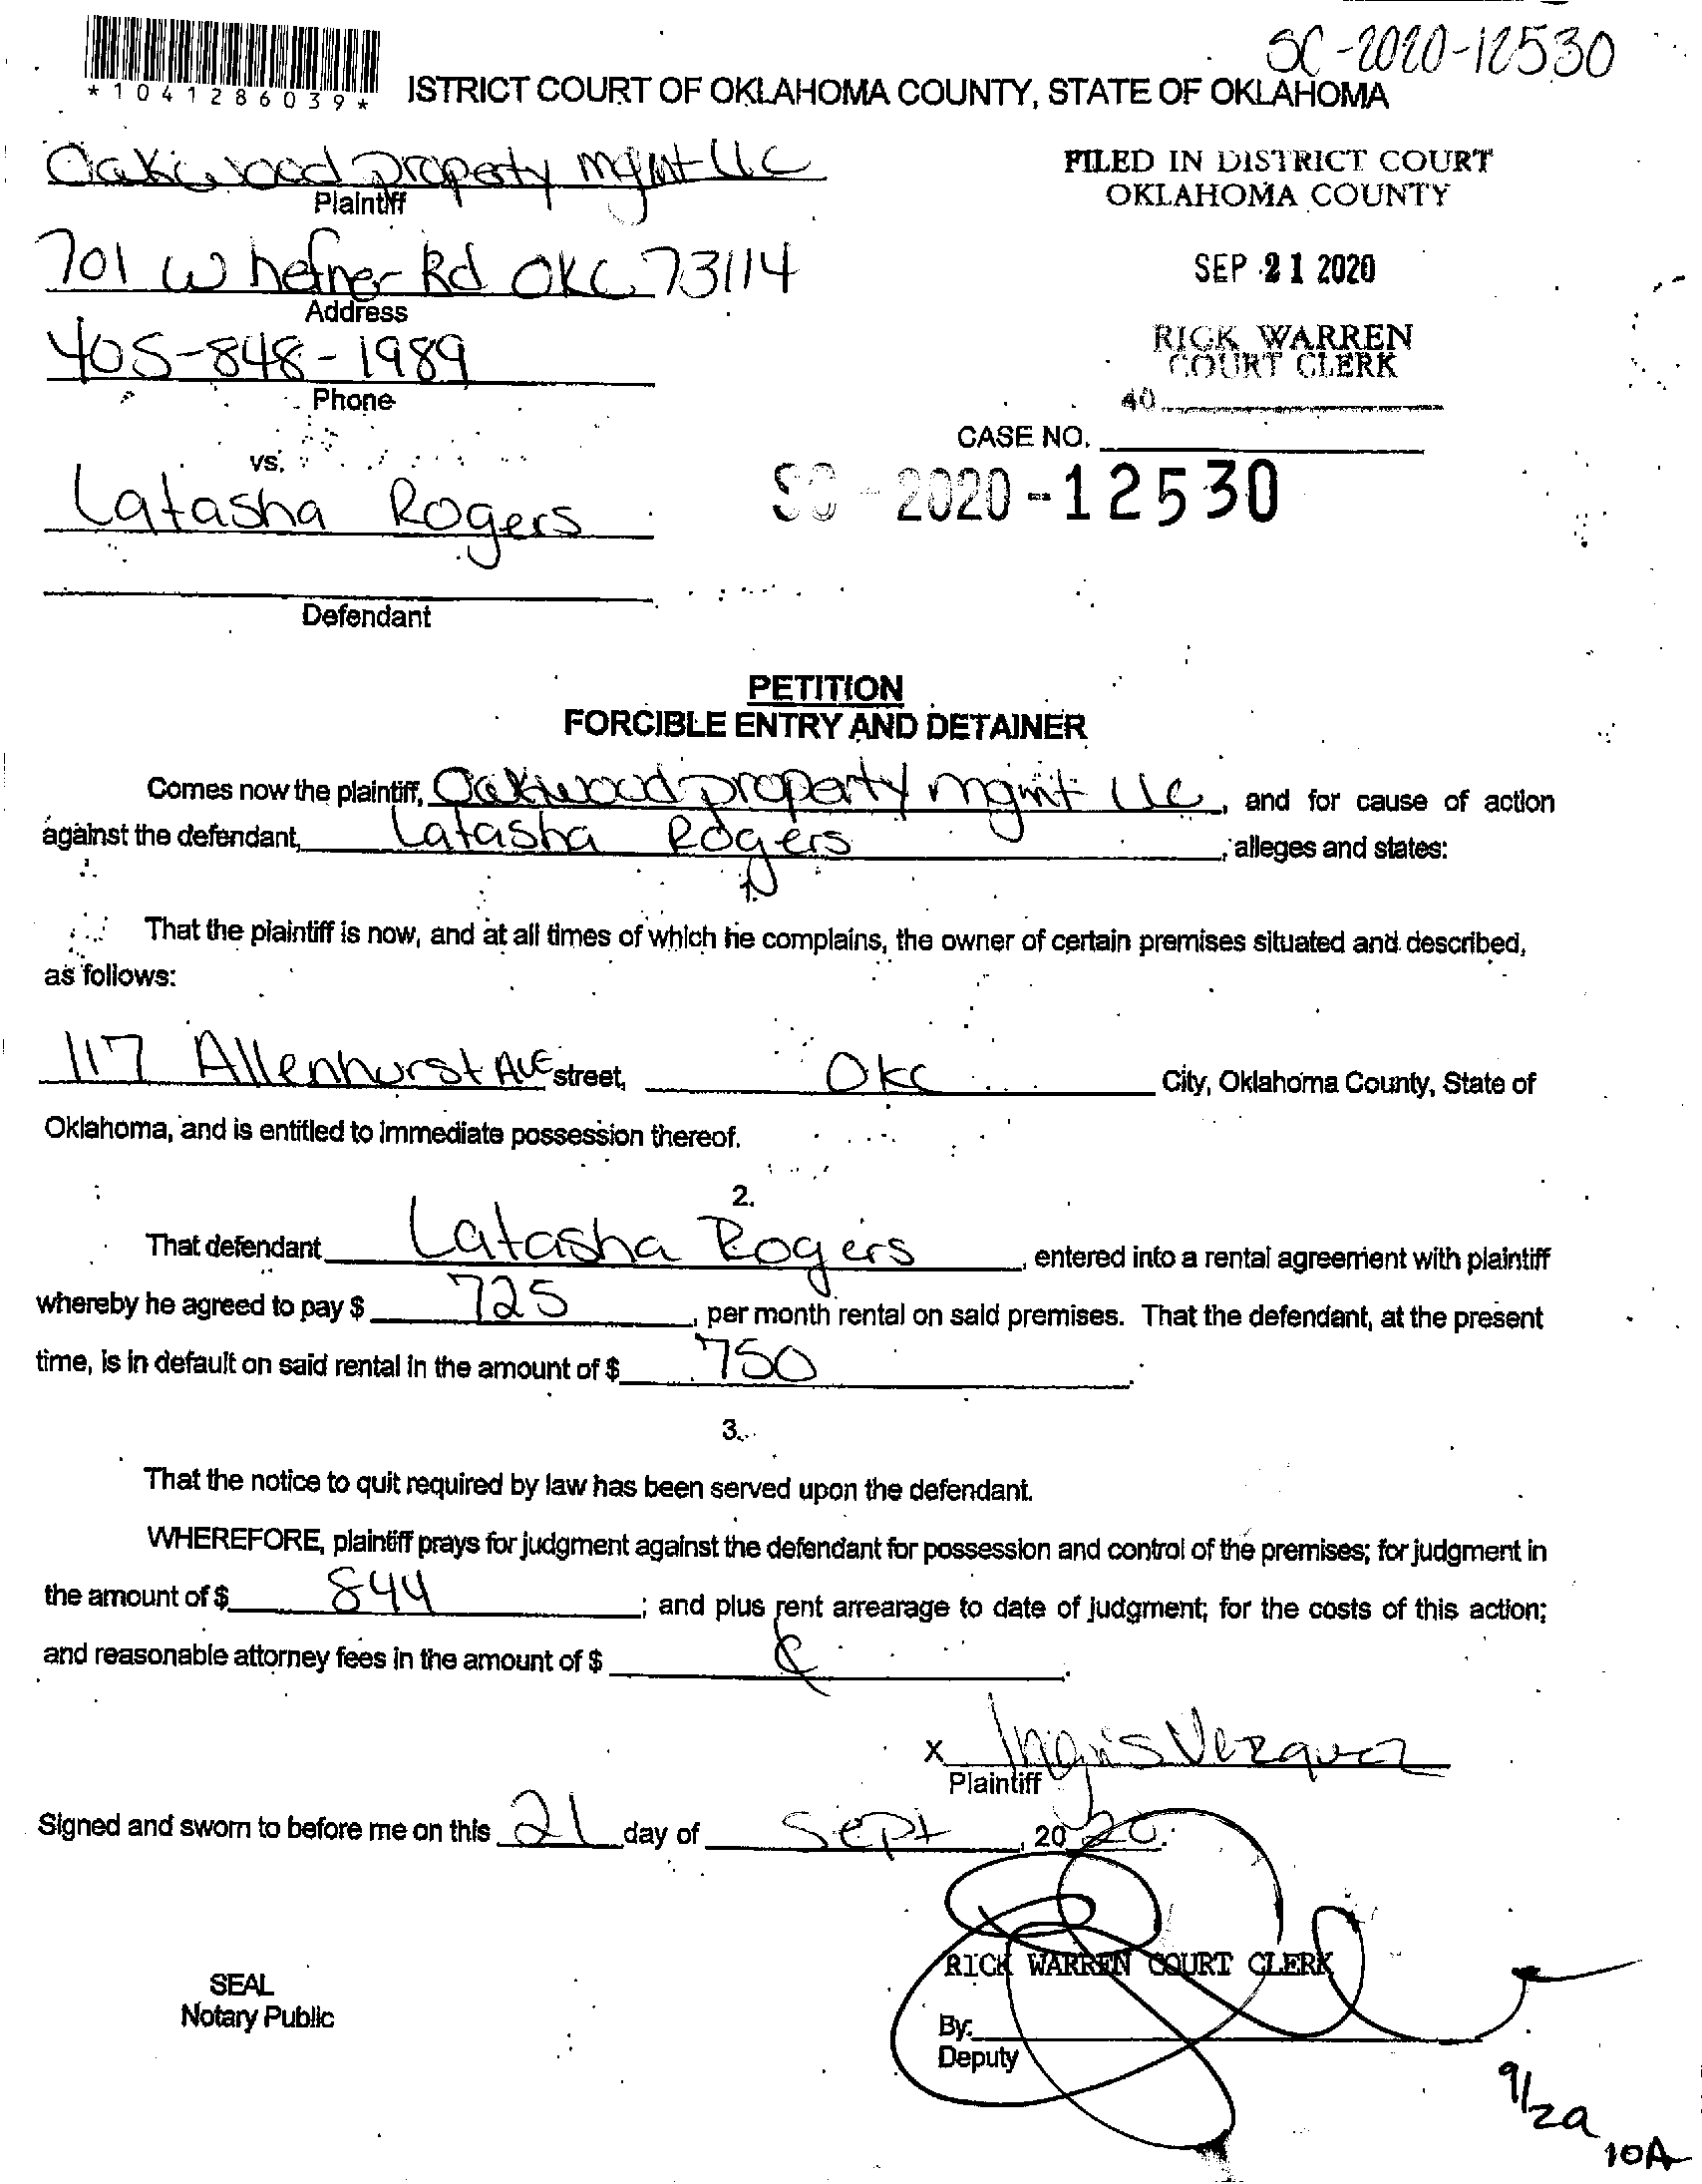 SC-2020-12530
*1041286039*
ISTRICT COURT OF OKLAHOMA COUNTY, STATE OF OKLAHOMA
Oakwood property mgmt llc
Plaintiff
FILED IN DISTRICT COURT
OKLAHOMA COUNTY
701 W hefner Rd OKC 73114
Address
SEP 21 2020
405-848-1989
Phone
RICK WARREN
COURT CLERK
40
CASE NO.
vs.
SC - 2020 - 12530
Latasha Rogers
Defendant
PETITION
FORCIBLE ENTRY AND DETAINER
Comes now the plaintiff, Oakwood property mgmt llc, and for cause of action
against the defendant, Latasha Rogers, alleges and states:
1.
That the plaintiff is now, and at all times of which he complains, the owner of certain premises situated and described,
as follows:
117 Allenhurst Ave street, OKC City, Oklahoma County, State of
Oklahoma, and is entitled to immediate possession thereof.
2.
That defendant Latasha Rogers, entered into a rental agreement with plaintiff
whereby he agreed to pay $ 725, per month rental on said premises. That the defendant, at the present
time, is in default on said rental in the amount of $ 750.
3.
That the notice to quit required by law has been served upon the defendant.
WHEREFORE, plaintiff prays for judgment against the defendant for possession and control of the premises; for judgment in
the amount of $ 844; and plus rent arrearage to date of judgment; for the costs of this action;
and reasonable attorney fees in the amount of $
x
Plaintiff
Signed and sworn to before me on this 21 day of Sept, 2020.
RICK WARREN COURT CLERK
SEAL
Notary Public
By:
Deputy
9/29
10A